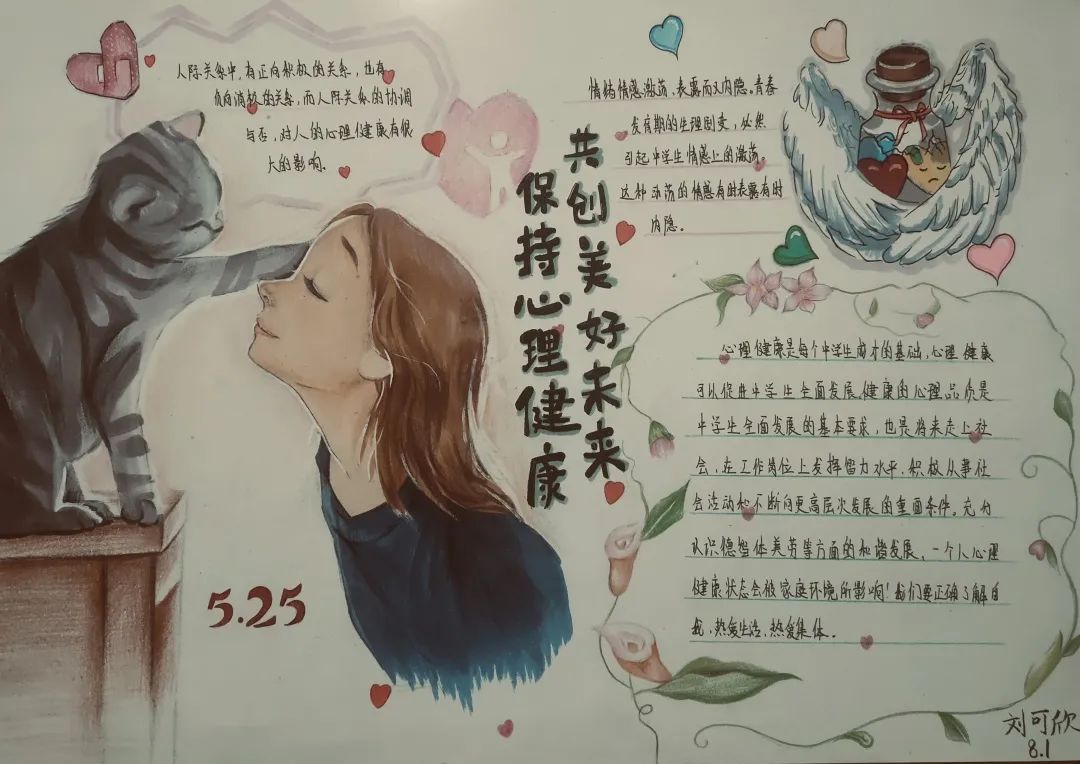 人际关系中,有正向积极的关系,也有
负向消极的关系,而人际关系的协调
与否,对人的心理健康有很
大的影响.
共创美好未来
保持心理健康
情绪情感激荡,表露而又内隐。青春
发育期的生理剧变,必然
引起中学生情感上的激荡。
这种动荡的情感有时表露有时
内隐。
心理健康是每个中学生成才的基础,心理健康
可以促进中学生全面发展,健康的心理品质是
中学生全面发展的基本要求,也是将来走上社
会,在工作岗位上发挥智力水平,积极从事社
会活动和不断向更高层次发展的重要条件。充分
认识德智体美劳等方面的和谐发展,一个人心理
健康状态会被家庭环境所影响!我们要正确了解自
我,热爱生活,热爱集体.
5.25
刘可欣
8.1